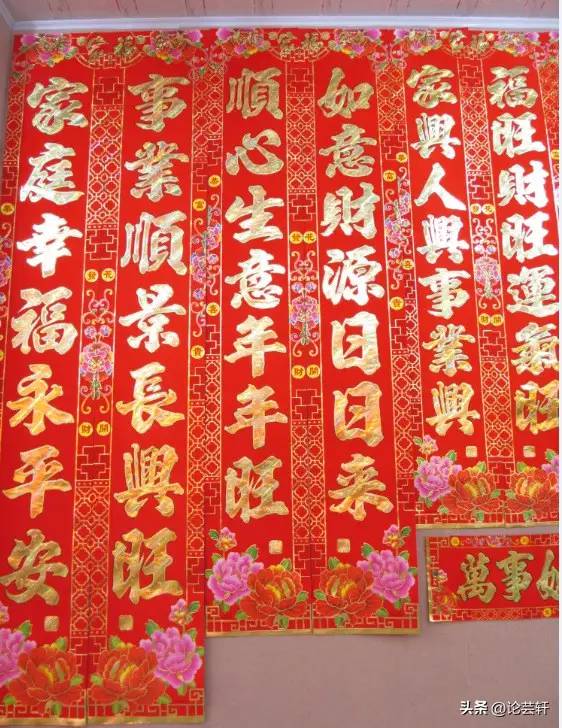 福旺財旺運氣旺
家興人興事業興
如意財源日日来
順心生意年年旺
事業順景長興旺
家庭幸福永平安
萬事如
头条 @论芸轩